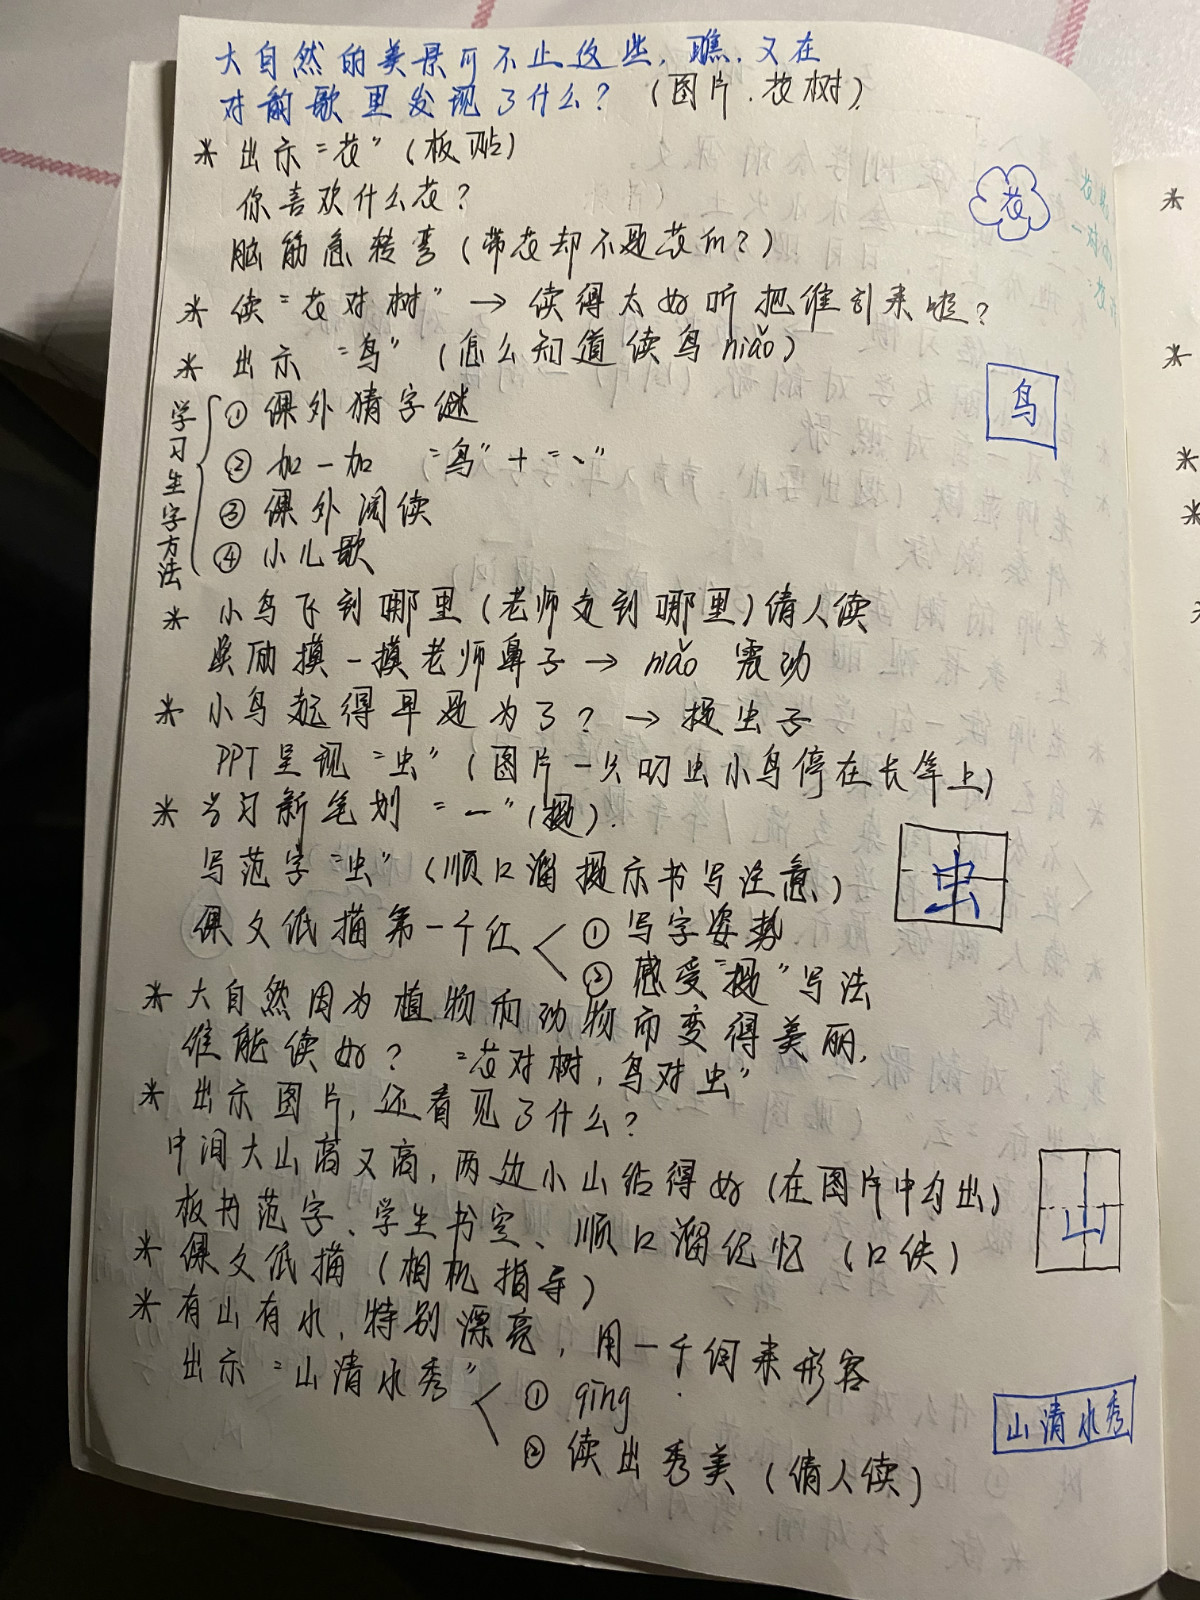 大自然的美景可不止这些,瞧,又在
对韵歌里发现了什么?(图片.花树)
* 出示“花”(板贴)
你喜欢什么花?
脑筋急转弯(带花却不是花的?)
花
* 读“花对树”→读得太好听把谁引来啦?
* 出示“鸟”(怎么知道读鸟niǎo)
鸟
学习生字方法
① 课外猜字谜
② 加一加 “鸟”+“丶”
③ 课外阅读
④ 小儿歌
* 小鸟飞到哪里(老师走到哪里)请人读
奖励摸一摸老师鼻子→niǎo 震动
* 小鸟起得早是为了?→捉虫子
PPT呈现“虫”(图片一只叼虫小鸟停在长竿上)
* 学习新笔划“㇀”(提).
写范字“虫”(顺口溜提示书写注意)
虫
课文低描第一个红
① 写字姿势
② 感受“提”写法
* 大自然因为植物和动物而变得美丽,
谁能读好?“花对树,鸟对虫”
* 出示图片,还看见了什么?
中间大山高又高,两边小山站得好(在图片中勾出)
板书范字、学生书空、顺口溜记忆(口诀)
山
* 课文低描(相机指导)
* 有山有水,特别漂亮,用一个词来形容
出示“山清水秀”
① qīng
② 读出秀美(请人读)
山清水秀